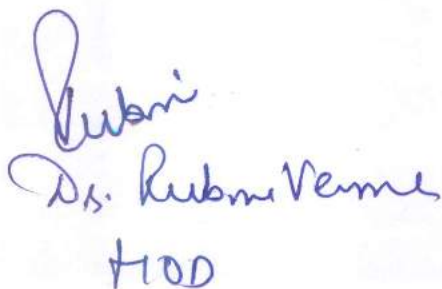 Rubni
Dr. Rubni Verma
HOD